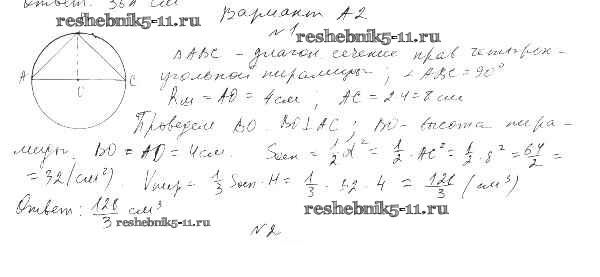 Ответ: 36π см
reshebnik5-11.ru
Вариант А2
№1
reshebnik5-11.ru
A
O
C
ΔABC - диагон. сечение прав. четырех-
угольной пирамиды; ∠ABC = 90°
Rш = AO = 4см; AC = 2·4 = 8 см
Проведем BO. BO⊥AC; BO - высота пира-
миды. BO = AO = 4см. Sосн = 1/2 d² = 1/2 · AC² = 1/2 · 8² = 64/2 =
= 32 (см²). Vпир = 1/3 Sосн · H = 1/3 · 32 · 4 = 128/3 (см³)
Ответ: 128/3 см³
reshebnik5-11.ru
reshebnik5-11.ru
№2